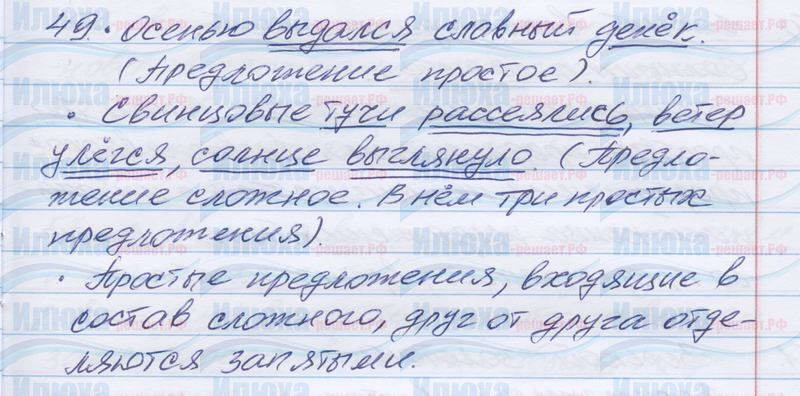 49. • Осенью выдался славный денёк.
(Предложение простое).
• Свинцовые тучи рассеялись, ветер
улёгся, солнце выглянуло. (Предло-
жение сложное. В нём три простых
предложения).
• Простые предложения, входящие в
состав сложного, друг от друга отде-
ляются запятыми.